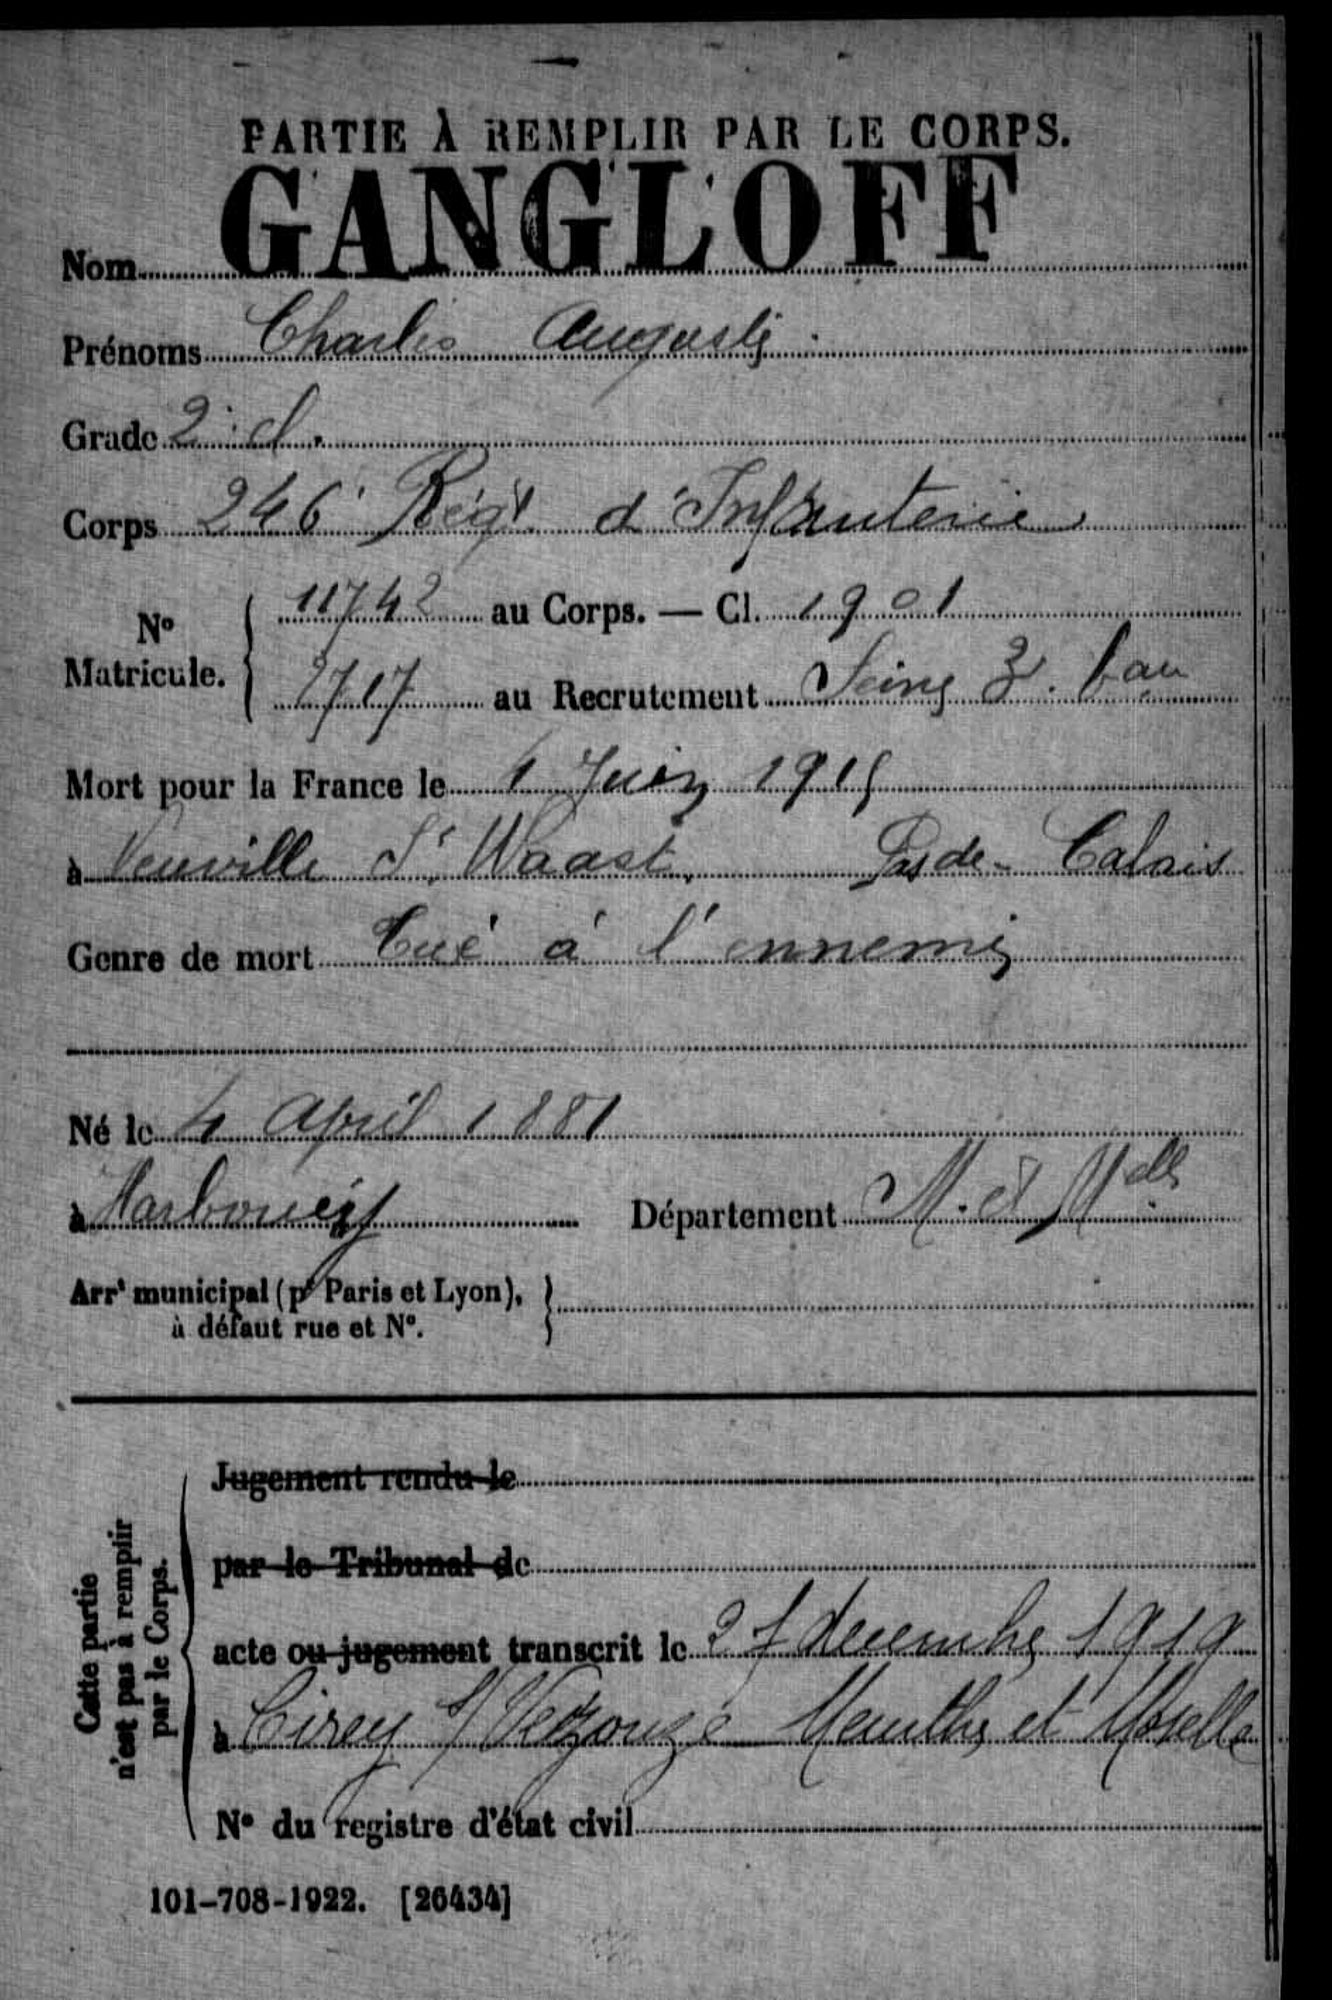 PARTIE À REMPLIR PAR LE CORPS.
Nom GANGLOFF
Prénoms Charles Auguste
Grade 2e cl.
Corps 246e Régt d'Infanterie
No Matricule. { 11742 au Corps. — Cl. 1901
2717 au Recrutement Seine 3e bau
Mort pour la France le 4 Juin 1915
à Neuville St Waast, Pas de-Calais
Genre de mort Tué à l'ennemi
Né le 4 April 1881
à Harbouey Département M. et Mlle
Arrt municipal (pr Paris et Lyon),
à défaut rue et No.
Cette partie
n'est pas à remplir
par le Corps.
Jugement rendu le
par le Tribunal de
acte ou jugement transcrit le decembre 1919
à Cirey s/ Vezouze Meurthe et Moselle
No du registre d'état civil
101-708-1922. [26434]